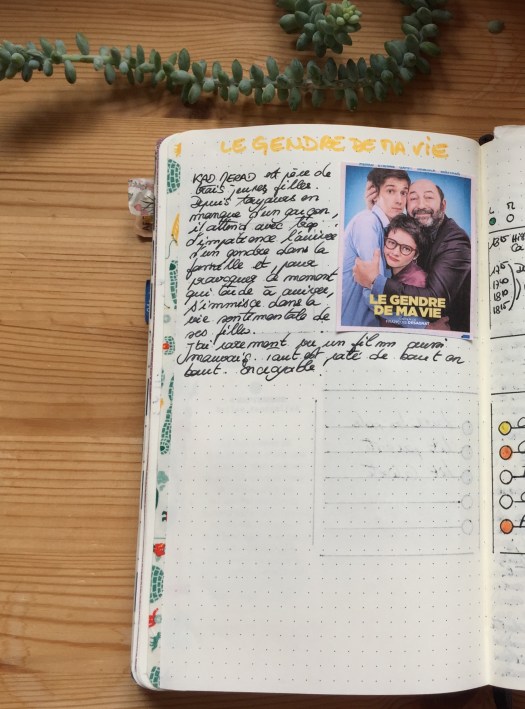 LE GENDRE DE MA VIE
KAD MERAD est père de
trois jeunes filles.
Depuis toujours en
manque d'un garçon,
il attend avec trop
d'impatience l'arrivée
d'un gendre dans la
famille et pour
provoquer ce moment
qui tarde à arriver,
s'immisce dans la
vie sentimentale de
ses filles.
J'ai rarement vu un film aussi
mauvais. tout est raté de bout en
bout. Incroyable
LE GENDRE
DE MA VIE